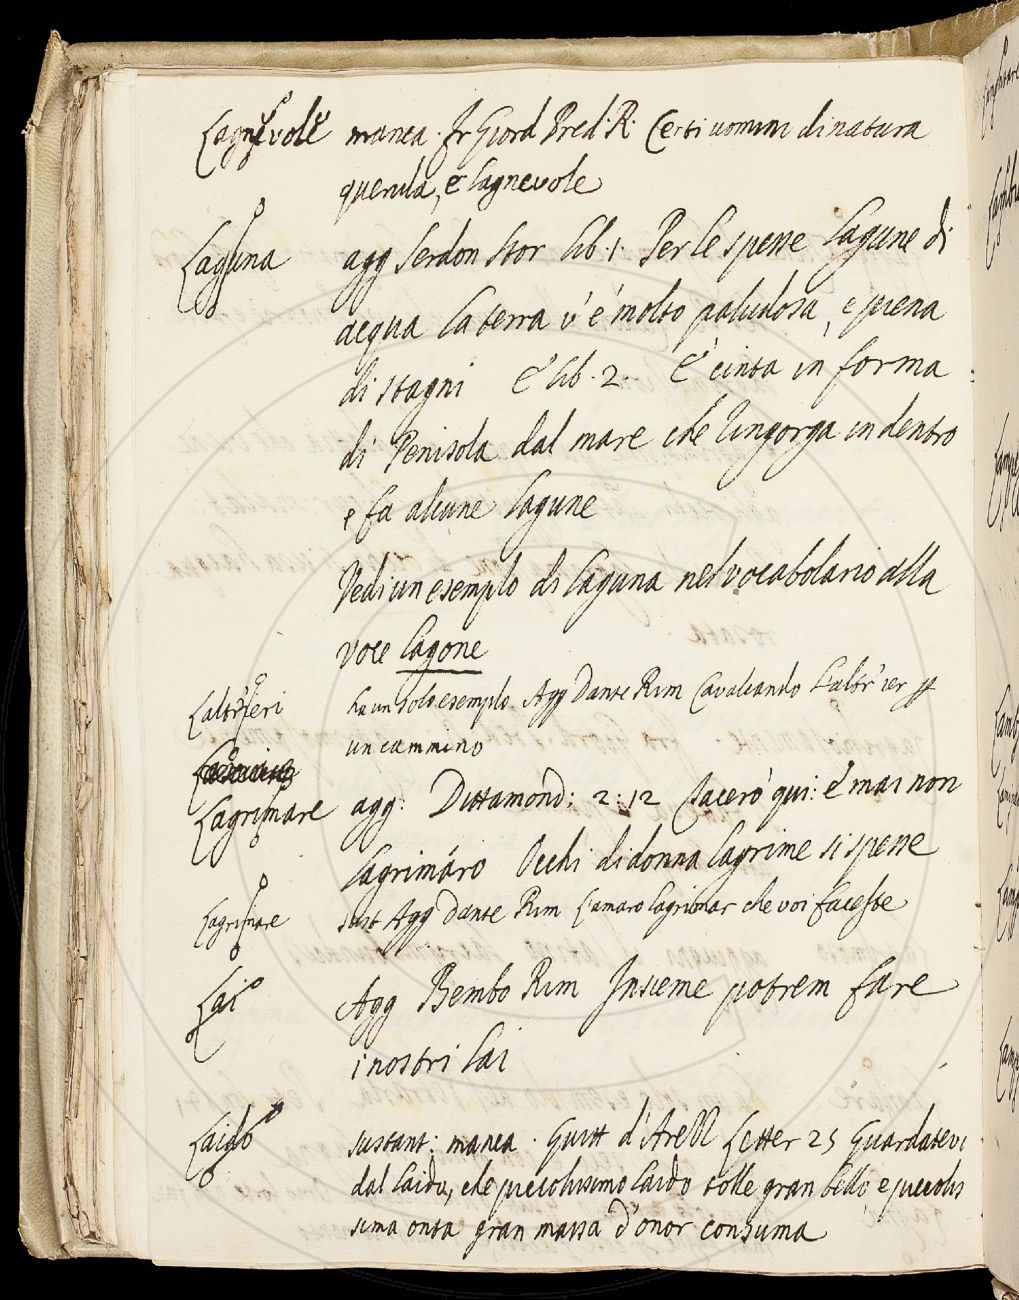 Lagnevole manca. Fr Giord Pred: R. Certi uomini di natura
querula, e lagnevole
Laguna agg Serdon Stor lib. 1. Per le spesse lagune di
acqua la terra v'è molto paludosa, e piena
di stagni E lib. 2 È cinta in forma
di Penisola dal mare che s'ingorga in dentro
e fa alcune lagune
Vedi un esempio di laguna nel vocabolario alla
voce lagone
Laltr'ieri ha un solo esempio Agg Dante Rim Cavalcando l'altr'ier
un cammino
Lagrimare agg: Dittamond: 2: 12 Tacerò qui: e mai non
lagrimáro Occhi di donna lagrime sì spesse
Lagrimare sust Agg Dante Rim L'amaro lagrimar che voi faceste
Lai Agg Bembo Rim Insieme potrem fare
i nostri lai
Laido sustant: manca. Guitt d'Arezz Letter 25 Guardatevi
dal laido, che piccolissimo laido tolle gran bello, e piccolis
sima onta gran massa d'onor consuma